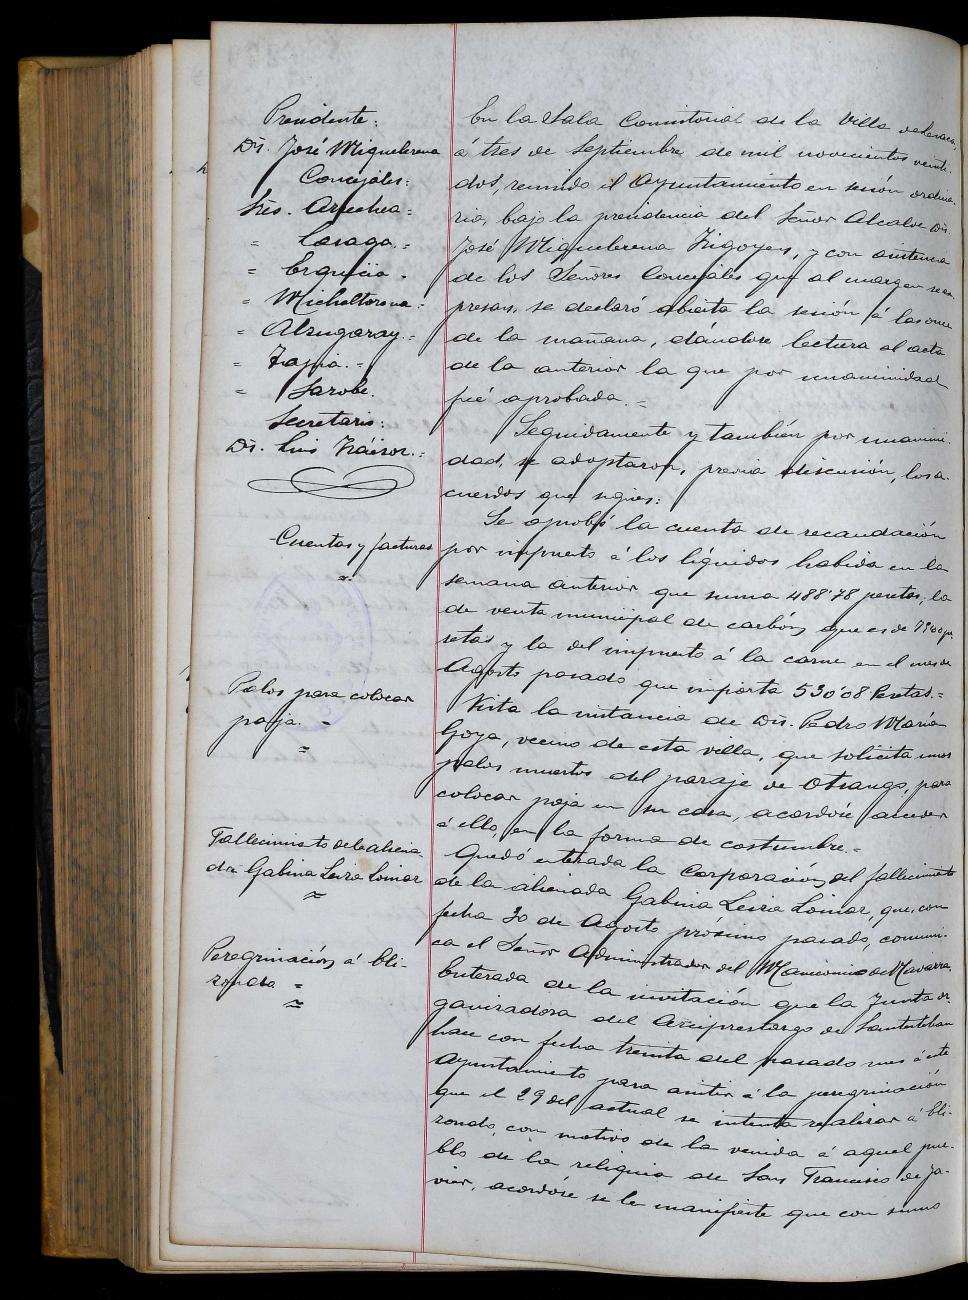 Presidente:
Dn. José Miquelerena
Concejales:
Sres. Arrechea =
" Lasaga. =
" Erquicia =
" Michaltorena =
" Alzugaray =
" Tapia. =
" Sarobe.
Secretario:
Dn. Luis Iráizoz. =
Cuentas y facturas
Palos para colocar
paja. =
Fallecimiento de la aliena
da Gabina Leiza Loinaz
Peregrinación á Eli-
zondo =
En la Sala Consistorial de la Villa de Lesaca,
á tres de Septiembre, de mil novecientos veinti-
dos, reunido el Ayuntamiento en sesión ordina-
ria, bajo la presidencia del Señor Alcalde Dn.
José Miquelerena Irigoyen, y con asistencia
de los Señores Concejales que al margen se ex-
presan, se declaró abierta la sesión á las once
de la mañana, dándose lectura al acta
de la anterior la que por unanimidad
fué aprobada. =
Seguidamente y también por unanimi-
dad, se adoptaron, previa discusión, los a-
cuerdos que siguen:
Se aprobó la cuenta de recaudación
por impuesto á los líquidos habida en la
semana anterior que suma 488'78 pesetas; la
de venta municipal de carbón, que es de pe-
setas y la del impuesto á la carne en el mes de
Agosto pasado que importa 530'08 Pesetas. =
Vista la instancia de Dn. Pedro María
Goya, vecino de esta villa, que solicita unos
palos muertos del paraje de Otsango, para
colocar paja en su casa, acordóse acceder
á ello, en la forma de costumbre. =
Quedó enterada la Corporación, del fallecimiento
de la alienada Gabina Leiza Loinaz, que, con
fecha 30 de Agosto próximo pasado, comuni-
ca el Señor Administrador del Manicomio de Navarra.
Enterada de la invitación que la Junta or-
ganizadora del Arciprestazgo de Santesteban
hace con fecha treinta del pasado mes á este
Ayuntamiento para asistir á la peregrinación
que el 29 del actual se intenta realizar á Eli-
zondo, con motivo de la venida á aquel pue-
blo de la reliquia de San Francisco de Ja-
vier, acordóse se le manifieste que con sumo